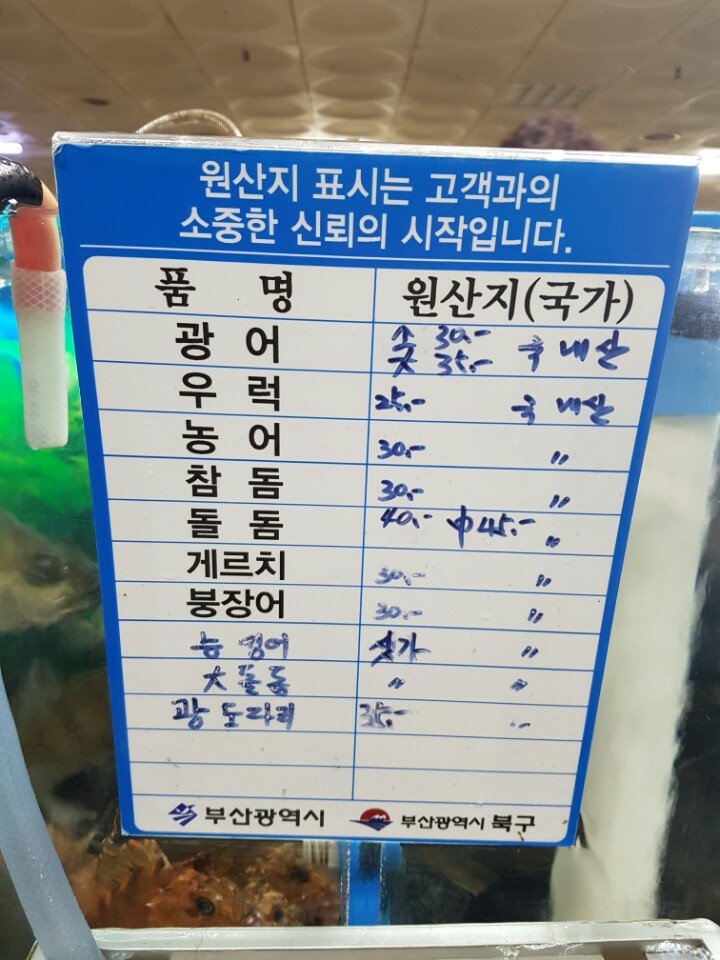 원산지 표시는 고객과의
소중한 신뢰의 시작입니다.
품 명 원산지(국가)
광 어 小 30.- 大 35.- 국내산
우 럭 25.- 국내산
농 어 30.- 〃
참 돔 30.- 〃
돌 돔 40.- 中 45.- 〃
게르치 30.- 〃
붕장어 30.- 〃
능성어 싯가 〃
大 돌돔 〃 〃
광도다리 35.- 〃
부산광역시 부산광역시 북구